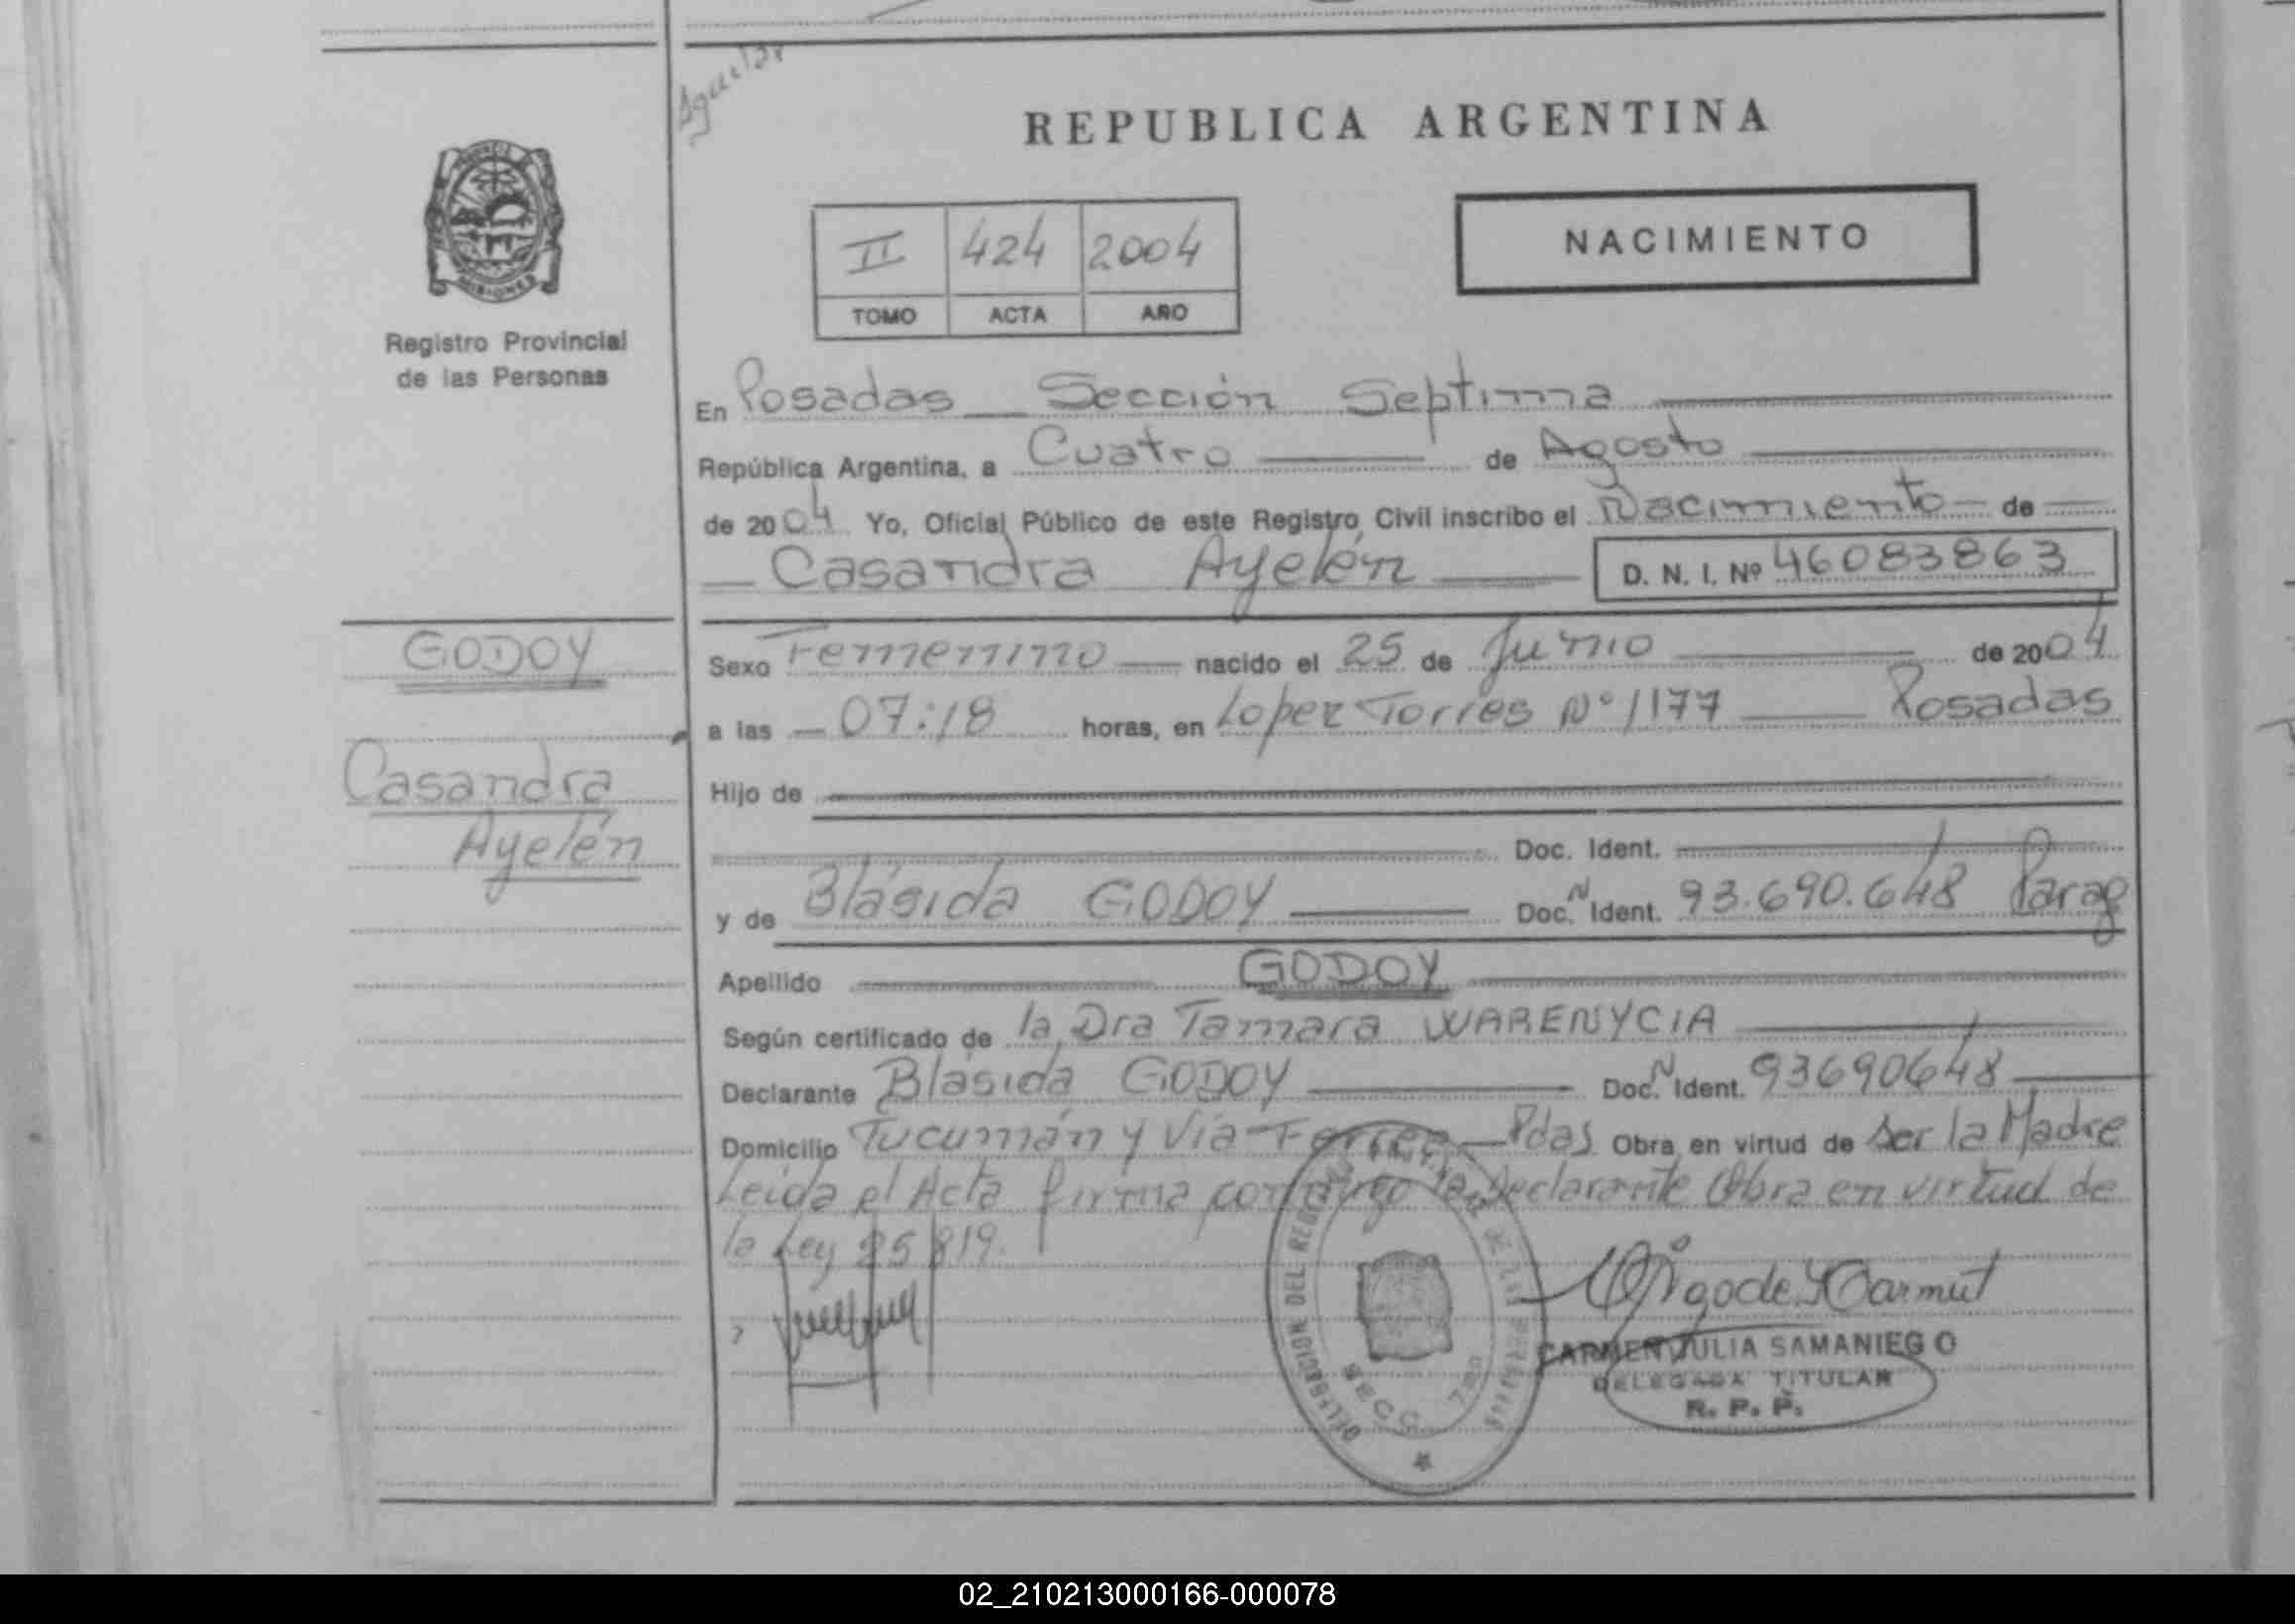 Aguilar
REPUBLICA ARGENTINA
II 424 2004
TOMO ACTA AÑO
NACIMIENTO
MISIONES
Registro Provincial
de las Personas
En Posadas Sección Septima
República Argentina, a Cuatro de Agosto
de 2004 Yo, Oficial Público de este Registro Civil inscribo el Nacimiento de
Casandra Ayelén D. N. I. Nº 46083863
GODOY
Casandra
Ayelén
Sexo Femenino nacido el 25 de Junio de 2004
a las 07:18 horas, en Lopez Torres Nº 1177 Posadas
Hijo de
Doc. Ident.
y de Blásida GODOY Doc. N Ident. 93.690.648 Parag
Apellido GODOY
Según certificado de la Dra Tamara WARENYCIA
Declarante Blásida GODOY Doc. N Ident. 93690648
Domicilio Tucumán y Vía Ferrea Pdas Obra en virtud de ser la Madre
Leída el Acta firma conmigo la Declarante Obra en virtud de
la Ley 25819.
DELEGACION DEL REG DE LAS PERSONAS
SECC. 7ma
CARMEN JULIA SAMANIEGO
DELEGADA TITULAR
R. P. P.
02_210213000166-000078